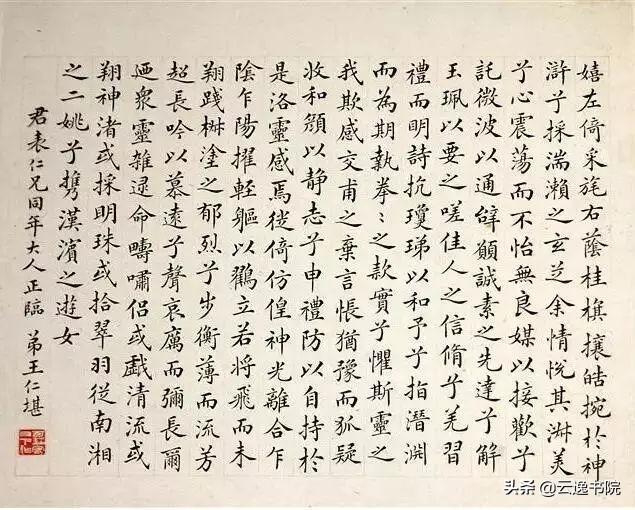 嬉左倚采旄右蔭桂旗攘皓捥於神
滸兮採湍瀨之玄芝余情悅其淑美
兮心震蕩而不怡無良媒以接歡兮
託微波以通辤願誠素之先達兮解
玉珮以要之嗟佳人之信脩兮羌習
禮而明詩抗瓊珶以和予兮指潛淵
而為期執拳〻之款實兮懼斯靈之
我欺感交甫之棄言悵猶豫而狐疑
收和顏以静志兮申禮防以自持於
是洛靈感焉徙倚仿偟神光離合乍
陰乍陽擢輕軀以鸖立若將飛而未
翔踐椒塗之郁烈兮步衡薄而流芳
超長吟以慕遠兮聲哀厲而彌長爾
迺眾靈雜遝命疇嘯侶或戲清流或
翔神渚或採明珠或拾翠羽從南湘
之二姚兮攜漢濱之遊女
君表仁兄同年大人正臨 弟王仁堪
头条 @云逸书院